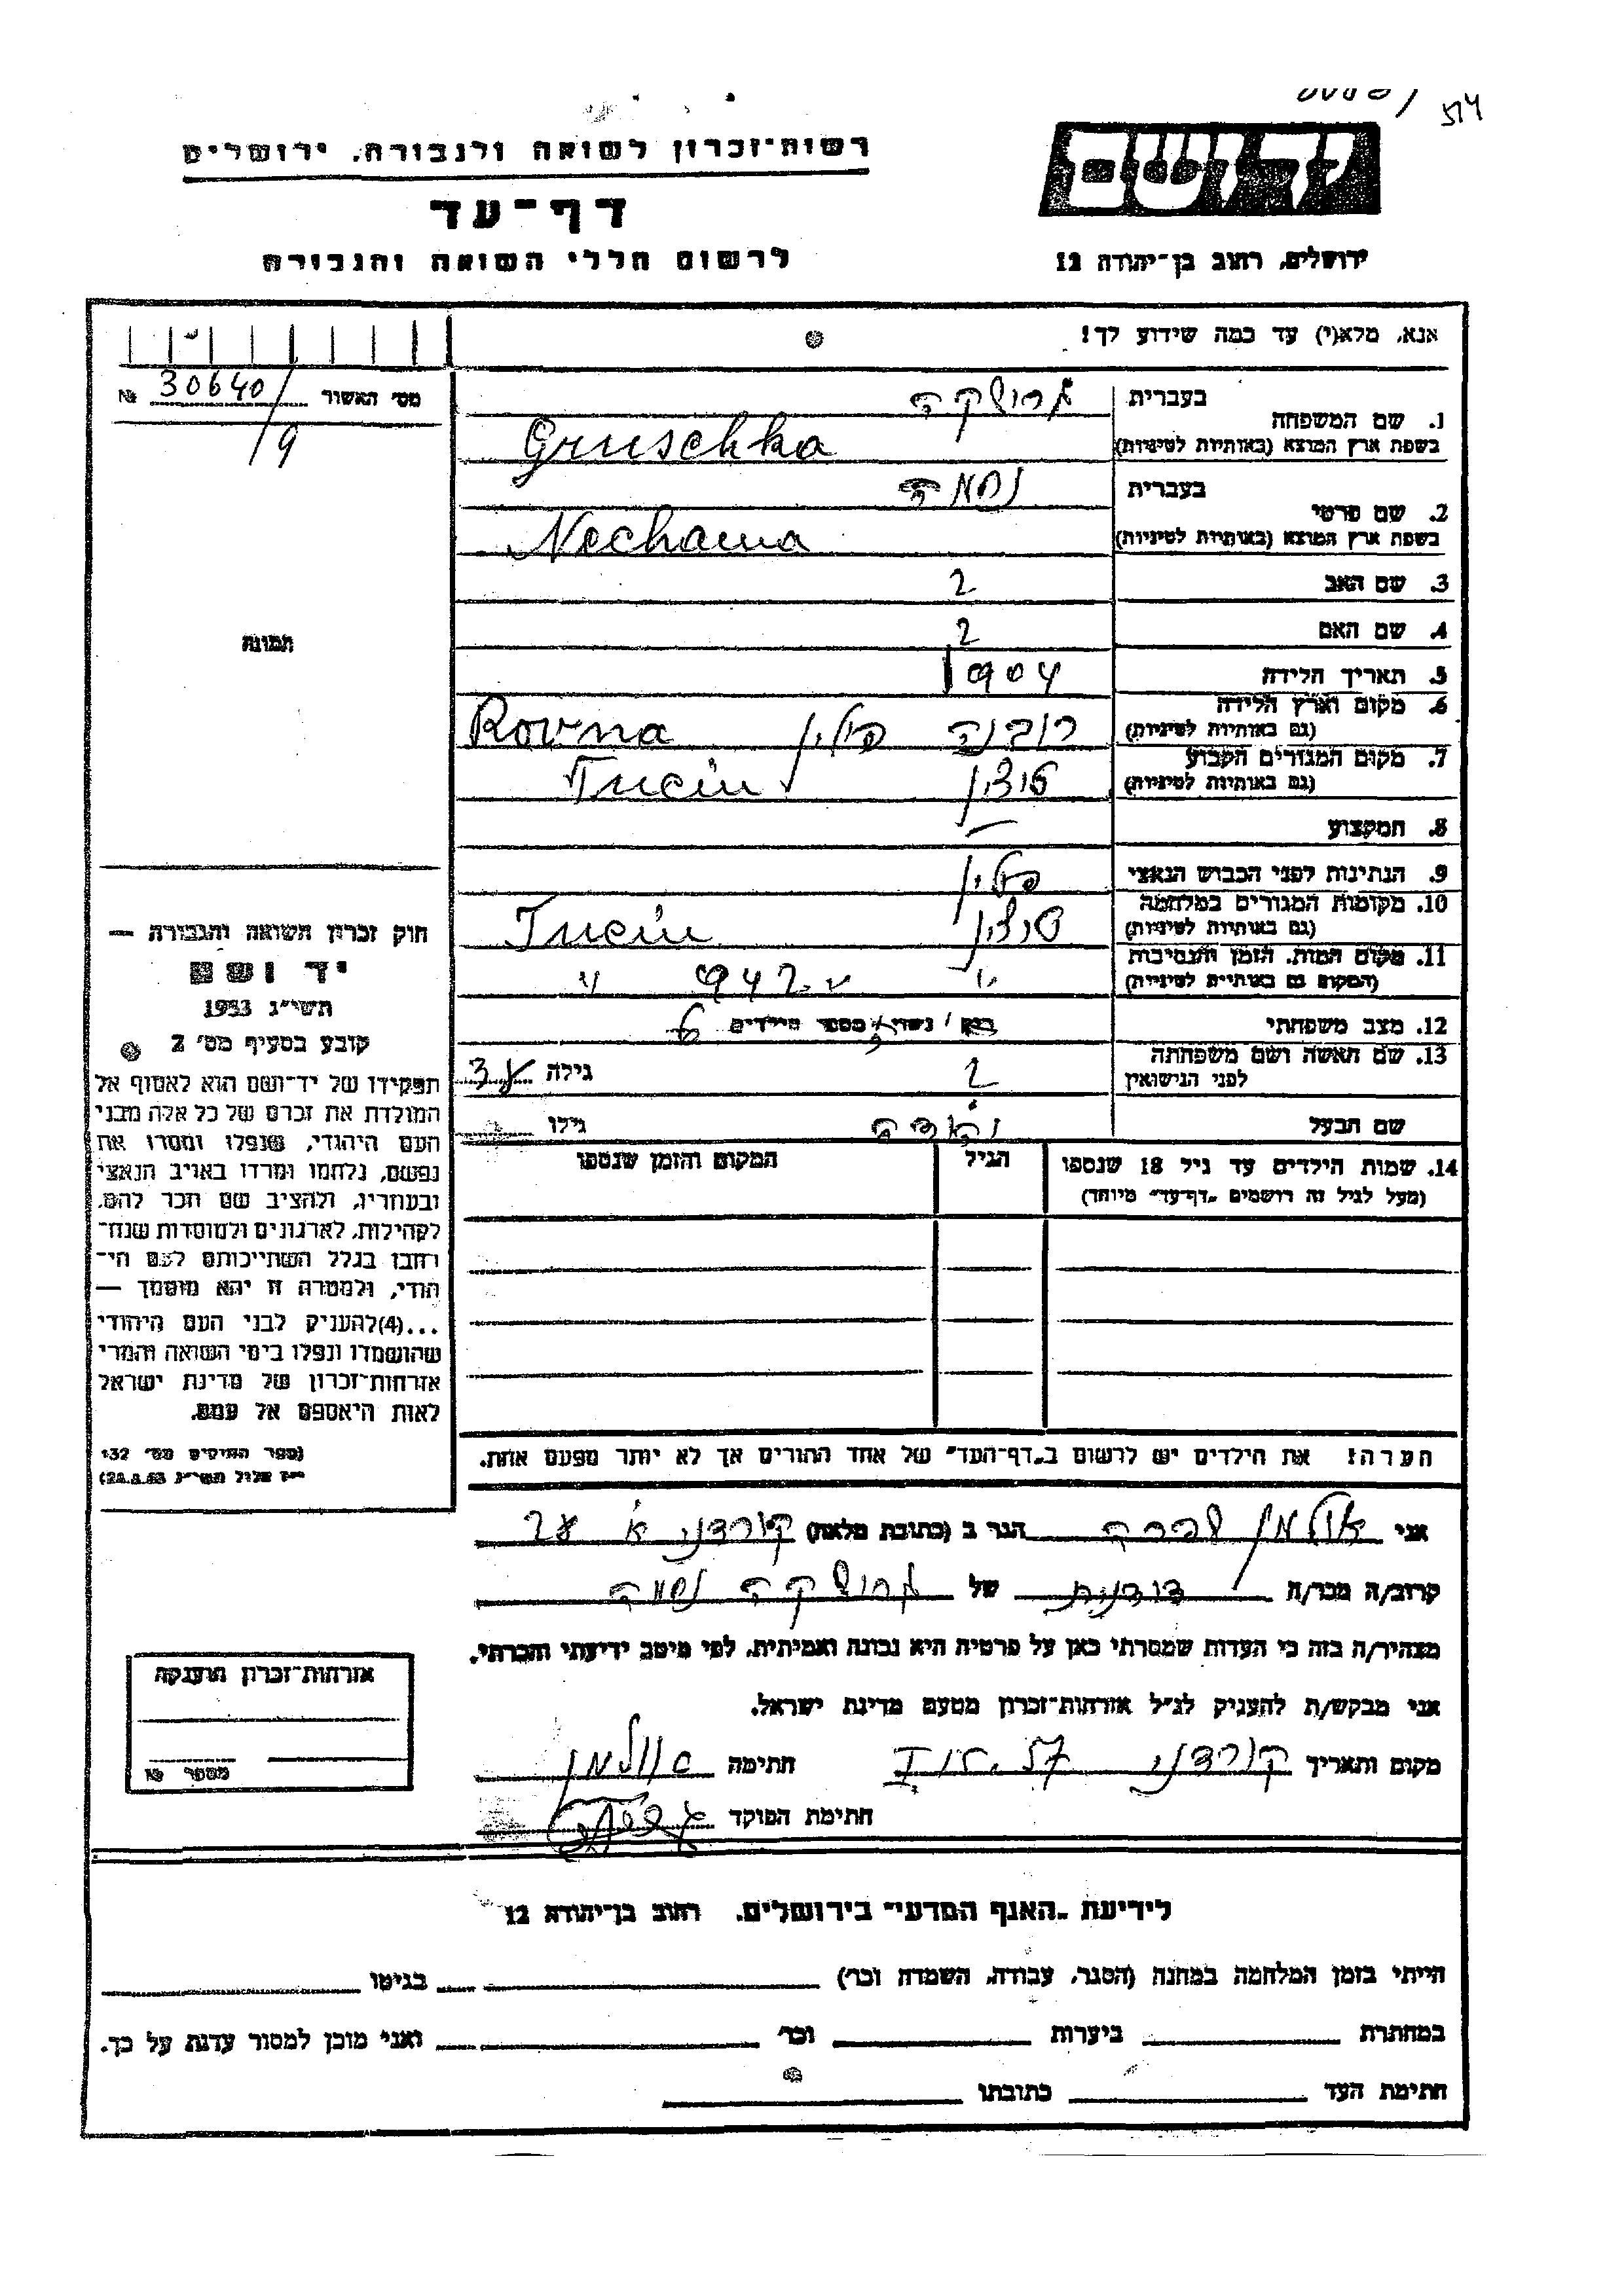 514
יד ושם
רשות-זכרון לשואה ולגבורה, ירושלים
דף-עד
לרשום חללי השואה והגבורה
ירושלים, רחוב בן-יהודה 12
אנא, מלא(י) עד כמה שידוע לך!
מס' האשור 30640 №
/9
תמונה
1. שם המשפחה
בעברית גרושקה
בשפת ארץ המוצא (באותיות לטיניות) Gruschka
2. שם פרטי
בעברית נחמה
בשפת ארץ המוצא (באותיות לטיניות) Nechama
3. שם האב ?
4. שם האם ?
5. תאריך הלידה 1904
6. מקום וארץ הלידה
(גם באותיות לטיניות) רובנה פולין Rovna
7. מקום המגורים הקבוע
(גם באותיות לטיניות) טוצין Tucin
8. המקצוע —
9. הנתינות לפני הכבוש הנאצי פולין
10. מקומות המגורים במלחמה
(גם באותיות לטיניות) טוצין Tucin
11. מקום המות, הזמן והנסיבות
(המקום גם באותיות לטיניות) " 942 "
12. מצב משפחתי רווק/נשוי/ מספר הילדים 6
13. שם האשה ושם משפחתה
לפני הנישואין ? גילה 38
שם הבעל גילו
14. שמות הילדים עד גיל 18 שנספו
(מעל לגיל זה רושמים "דף-עד" מיוחד)
הגיל
המקום והזמן שנספו
הערה! את הילדים יש לרשום ב"דף-העד" של אחד ההורים אך לא יותר מפעם אחת.
חוק זכרון השואה והגבורה —
יד ושם
תשי"ג 1953
קובע בסעיף מס' 2
תפקידו של יד-ושם הוא לאסוף אל
המולדת את זכרם של כל אלה מבני
העם היהודי, שנפלו ומסרו את
נפשם, נלחמו ומרדו באויב הנאצי
ובעוזריו, ולהציב שם וזכר להם,
לקהילות, לארגונים ולמוסדות שנח-
רחבו בגלל השתייכותם לעם הי-
הודי, ולמטרה זו יהא מוסמך —
...(4)להעניק לבני העם היהודי
שהושמדו ונפלו בימי השואה והמרי
אזרחות-זכרון של מדינת ישראל
לאות היאספם אל עמם.
(ספר החוקים מס' 132
אני אולמן שפרה הגר ב (כתובת מלאה) קורדני א
קרוב/ה מכר/ה דודנית של גרושקה נחמה
מצהיר/ה בזה כי העדות שמסרתי כאן על פרטיה היא נכונה ואמיתית, לפי מיטב ידיעתי והכרתי.
אני מבקש/ת להעניק לנ"ל אזרחות-זכרון מטעם מדינת ישראל.
מקום ותאריך קורדני חתימה אולמן
חתימת הפוקד
אזרחות-זכרון הוענקה
מספר №
לידיעת "האגף המדעי" בירושלים, רחוב בן-יהודה 12
הייתי בזמן המלחמה במחנה (הסגר, עבודה, השמדה וכו') בגיטו
במחתרת ביערות וכו' ואני מוכן למסור עדות על כך.
חתימת העד כתובתו